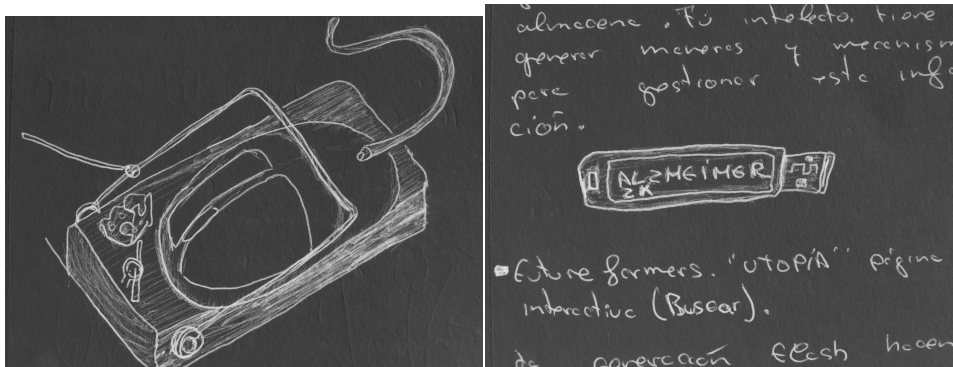 almacena. Tú intelecto, tiene
generar maneras y mecanism
para gestionar esta info
ción.
ALZHEIMER
2K
Future farmers. "UTOPÍA" página
interactiva (Buscar).
generación flash hacen